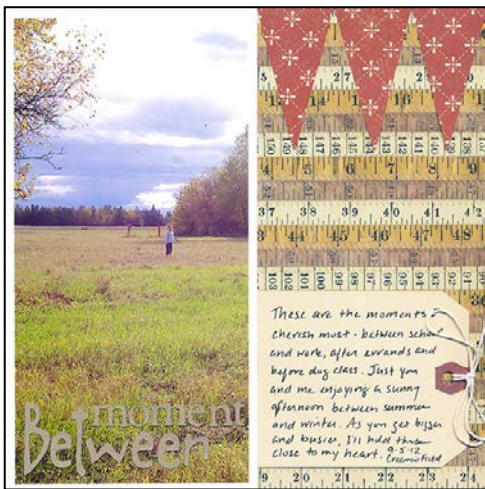 moment
Between
These are the moments I
cherish most - between school
and work, after errands and
before dog class. Just you
and me enjoying a sunny
afternoon between summer
and winter. As you get bigger
and busier, I'll hold these
close to my heart. 9-5-12
Field